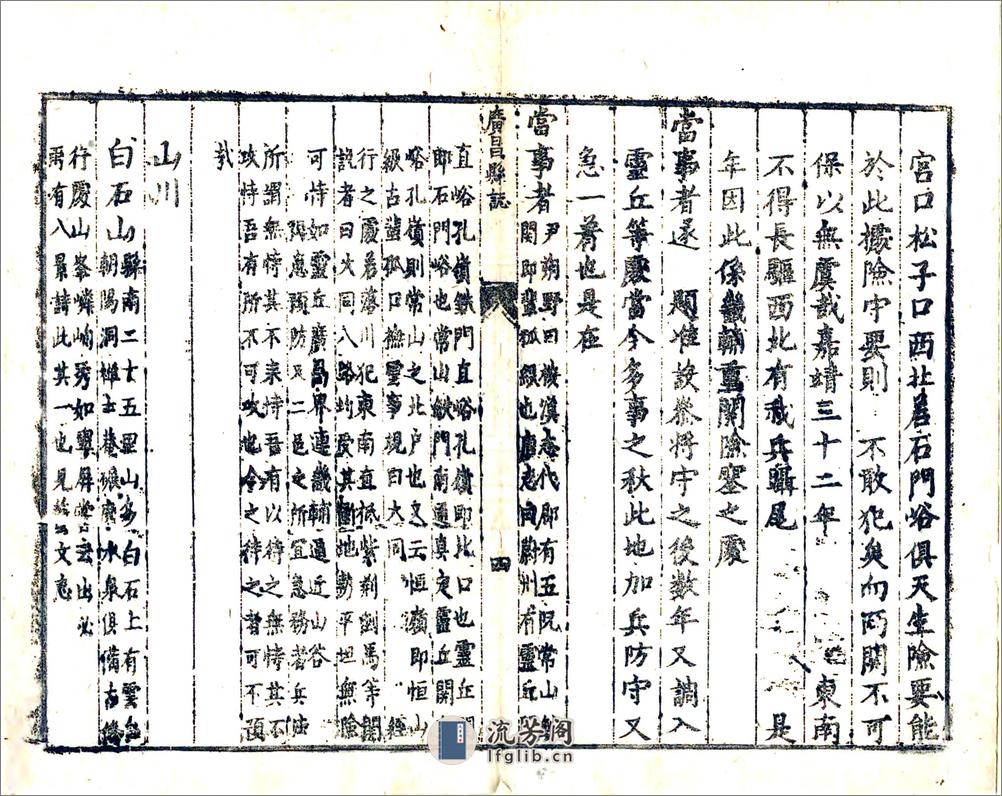 宮口松子口西北若石門峪俱天生險要能
於此據險守要則 不敢犯矣而兩關不可
保以無虞哉嘉靖三十二年 東南
不得長驅西北有我兵躡尾 是
年因此係畿輔重關險塞之處
當事者遂 題准設叅將守之後数年又調入
靈丘等處當今多事之秋此地加兵防守又
急一着也是在
當事者
尹朔野曰按漢志代郡有五阮常山
關即蜚狐 也 志曰蔚州有靈丘
廣昌縣誌
四
直峪孔嶺鉄門直峪孔嶺即北口也靈丘
即石門峪也常山鉄門南通真定靈丘關
峪孔嶺則常山之北户也又云恒嶺即恒山
級古蜚狐口襟雲事規曰大同 經
行之處若落川犯東南直抵紫荆劉馬等關
説者曰大同八路 其 地勢平坦無險
可恃如靈丘廣昌界連畿輔逼近山谷
隄患預防又二邑之所宜急務者兵法
所謂無恃其不来恃吾有以待之無恃其不
攻恃吾有所不可攻也今之待之者可不預
哉
山川
白石山
縣南二十五里山多白石上有雲台
朝陽洞 士菴 水泉俱備古
行慶山峯嶙峋秀如翠屏 雲出必
雨有八景詩此其一也見 文志
流芳阁
lfglib.cn